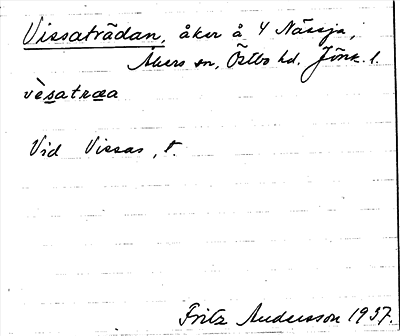 Vissaträdan, åker å 4 Nässja,
Åkers sn, Östbo hd. Jönk. l.
vèsatræa
Vid Vissas, t.
Fritz Andersson 1937.